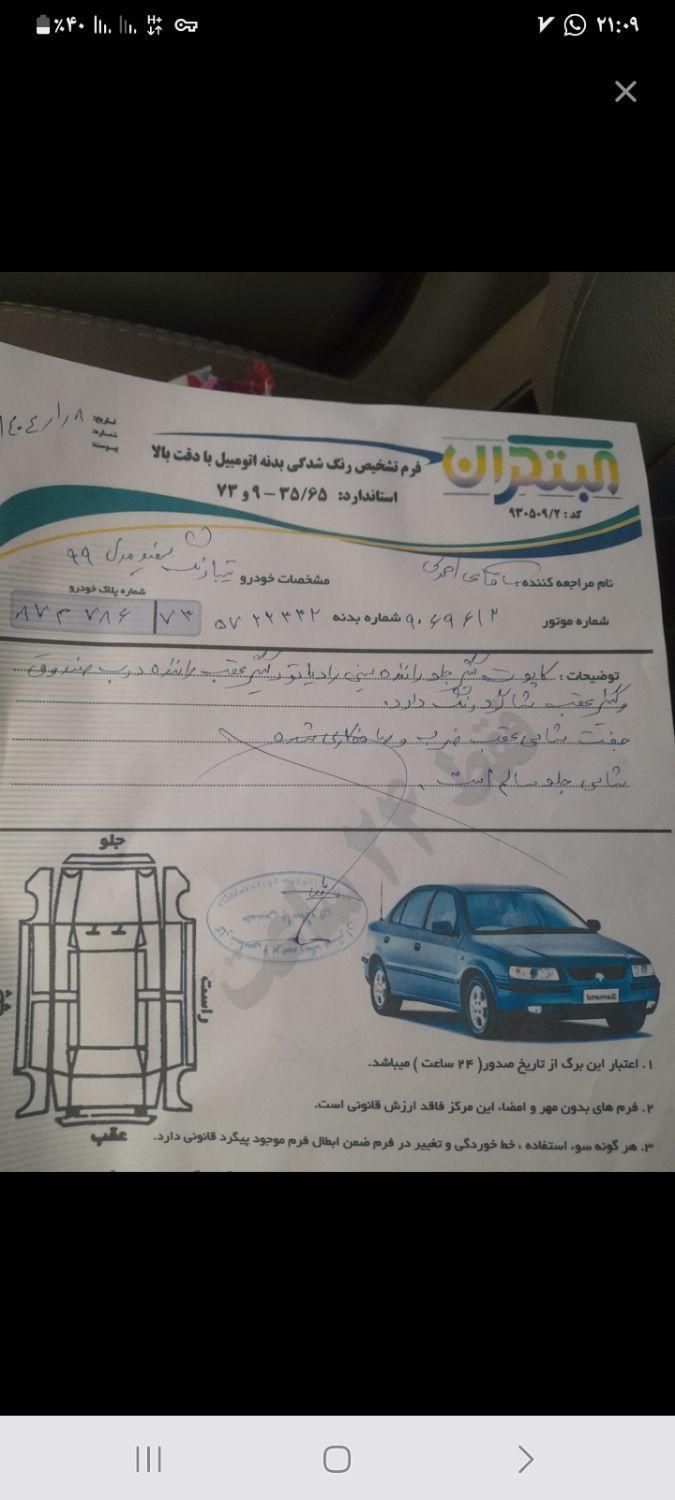 ٪۴۰
۲۱:۰۹
تاریخ:
شماره:
پیوست:
مبتکران
کد : ۹۳۰۵۰۹/۲
فرم تشخیص رنگ شدگی بدنه اتومبیل با دقت بالا
استاندارد: ۳۵/۶۵ – ۹ و ۷۳
نام مراجعه کننده: آقای احمدی
مشخصات خودرو تیبا رنگ سفید مدل ۹۹
شماره پلاک خودرو
شماره موتور ۹۰۶۹۶۱۲ شماره بدنه ۵۷۲۲۳۳۲
۷۳
توضیحات : کاپوت گلگیر جلو راننده سینی رادیاتور گلگیر عقب راننده درب صندوق
و گلگیر عقب شاگرد رنگ دارد.
جفت شاسی عقب ضرب و صافکاری شده
شاسی جلو سالم است.
فقط ۲۴ ساعت
جلو
راست
عقب
Samand
۱. اعتبار این برگ از تاریخ صدور( ۲۴ ساعت ) میباشد.
۲. فرم های بدون مهر و امضاء این مرکز فاقد ارزش قانونی است.
۳. هر گونه سوء استفاده ، خط خوردگی و تغییر در فرم ضمن ابطال فرم موجود پیگرد قانونی دارد.